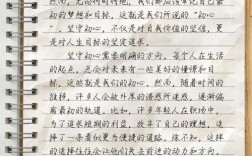 然而，无论何时何地，我们都应该牢记自己最
初的梦想和目标，这就是我们所说的“初心
”。
坚守初心，不仅是对自我价值的坚信，更
是对人生目标的坚定追求。
坚守初心需要明确的方向。每个人在生活
的起点，总会对未来有一些美好的憧憬和目
标，这就是我们的初心。然而，随着时间的
推移，许多人会被外界的诱惑所迷惑，逐渐偏
离最初的轨道。比如，许多年轻人在职场中
，为了追求短期的利益，放弃了自己的理想，选
择了一条看似更为便捷的道路。殊不知，这样
的选择往往会让他们失去前进的动力和方向